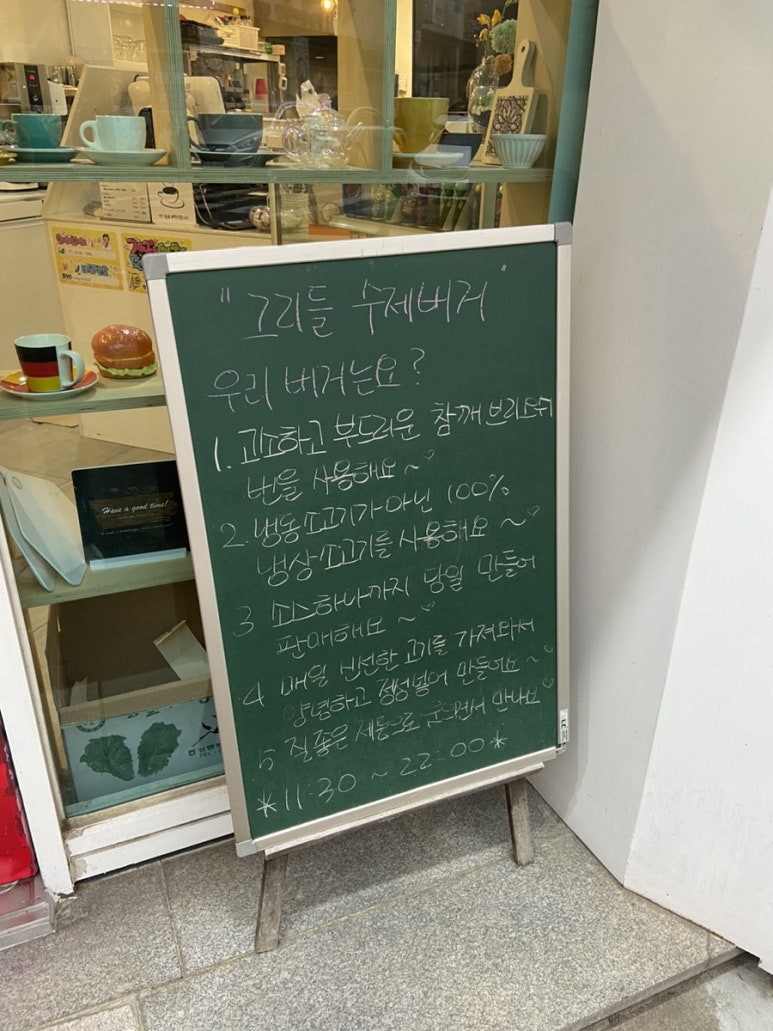 " 그리들 수제버거 "
우리 버거는요?
1. 고소하고 부드러운 참깨 브리오쉬
번을 사용해요~♡
2. 냉동소고기가 아닌 100%
냉장소고기를 사용해요~♡
3 소스하나까지 당일 만들어
판매해요~♡
4 매일 신선한 고기를 가져와서
양념하고 정성넣어 만들어요~♡
5 질좋은 세트으로
*11:30 ~ 22:00*
Have a good time!